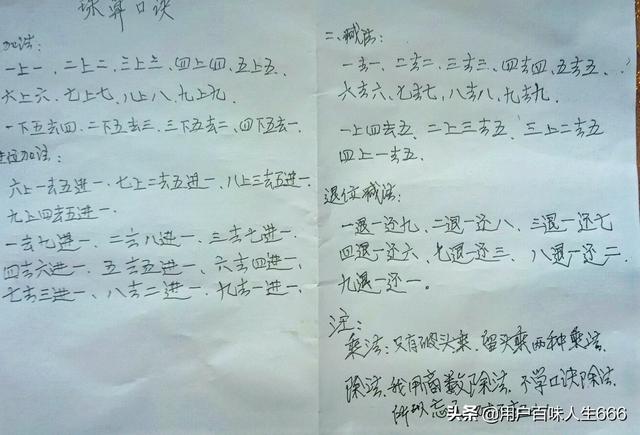 珠算口诀
加法:
一上一、二上二、三上三、四上四、五上五、
六上六、七上七、八上八、九上九、
一下五去四、二下五去三、三下五去二、四下五去一、
进位加法:
六上一去五进一、七上二去五进一、八上三去五进一、
九上四去五进一、
一去九进一、二去八进一、三去七进一、
四去六进一、五去五进一、六去四进一、
七去三进一、八去二进一、九去一进一、
二、减法:
一去一、二去二、三去三、四去四、五去五、
六去六、七去七、八去八、九去九
一上四去五、二上三去五、三上二去五
四上一去五、
退位减法:
一退一还九、二退一还八、三退一还七
四退一还六、七退一还三、八退一还二、
九退一还一。
注:
乘法:只有破头乘、留头乘两种乘法
除法、我用商数除法、不学口诀除法
所以忘了
头条 @用户百味人生666